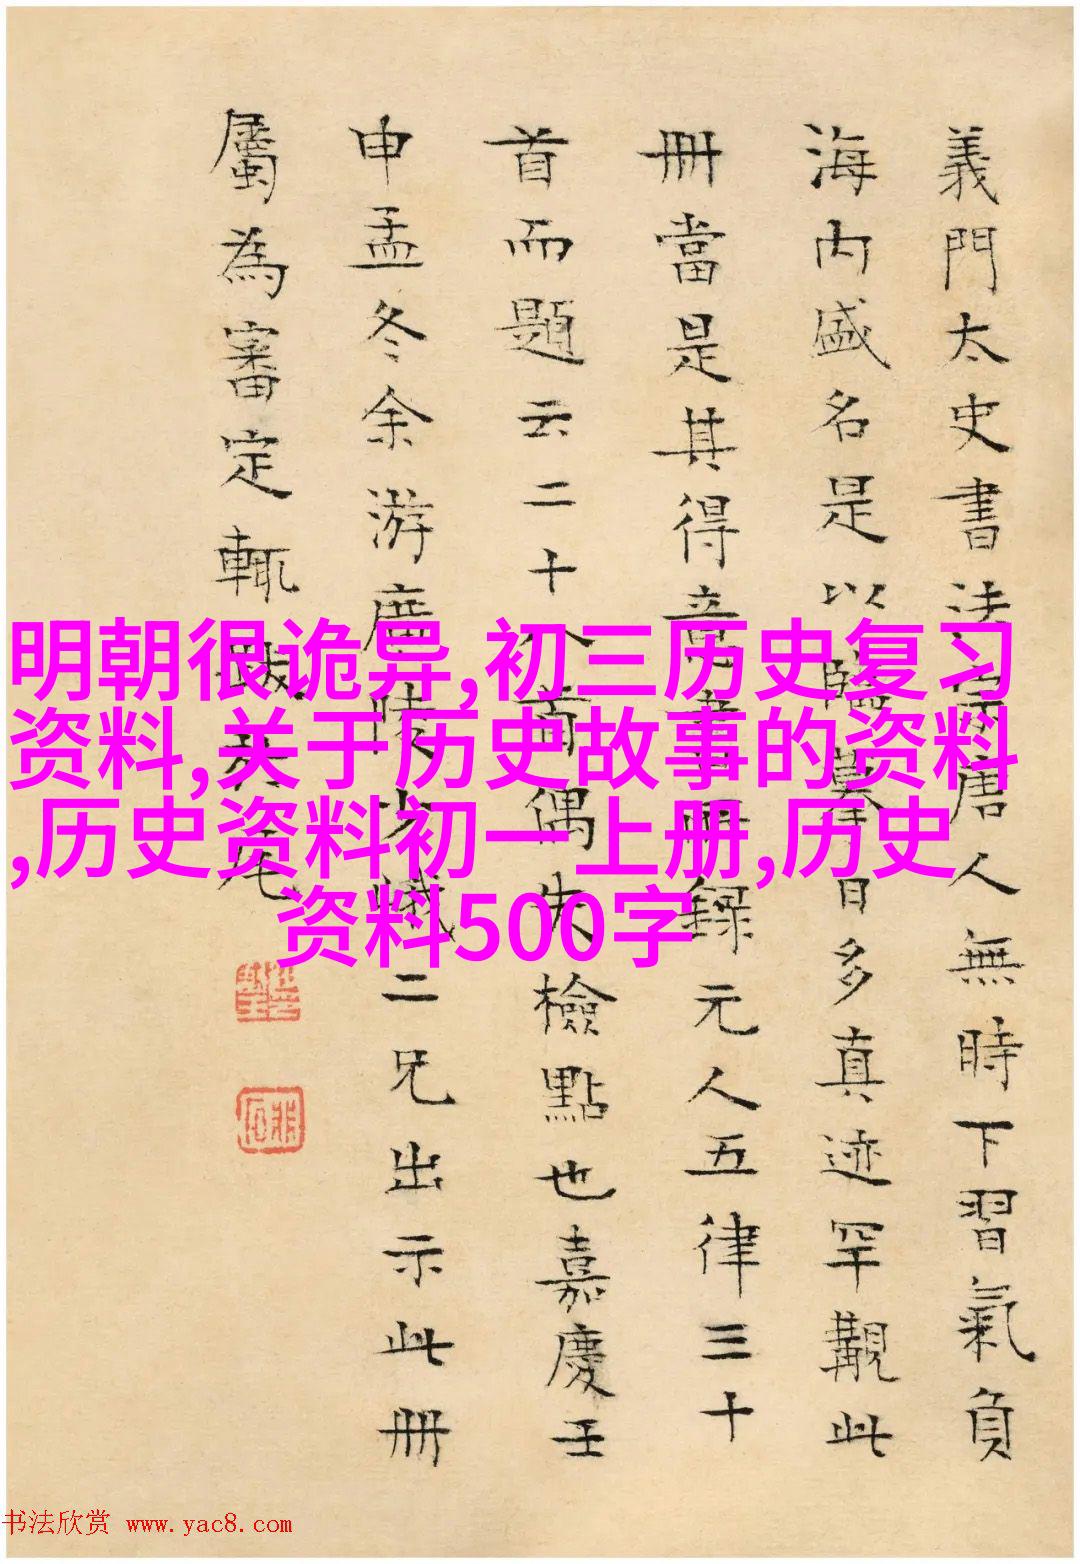 義門太史書法唐人無時下習氣負
海內盛名是以臨摹日多真迹罕覯此
冊當是其得意書冊錄元人五律三十
首而題云二十八首偶失檢點也嘉慶壬
申孟冬余游廣陵少峨二兄出示此冊
屬為審定輒跋於尾
明朝很诡异,初三历史复习
资料,关于历史故事的资料
,历史资料初一上册,历史
资料500字
书法欣赏 www.yac8.com